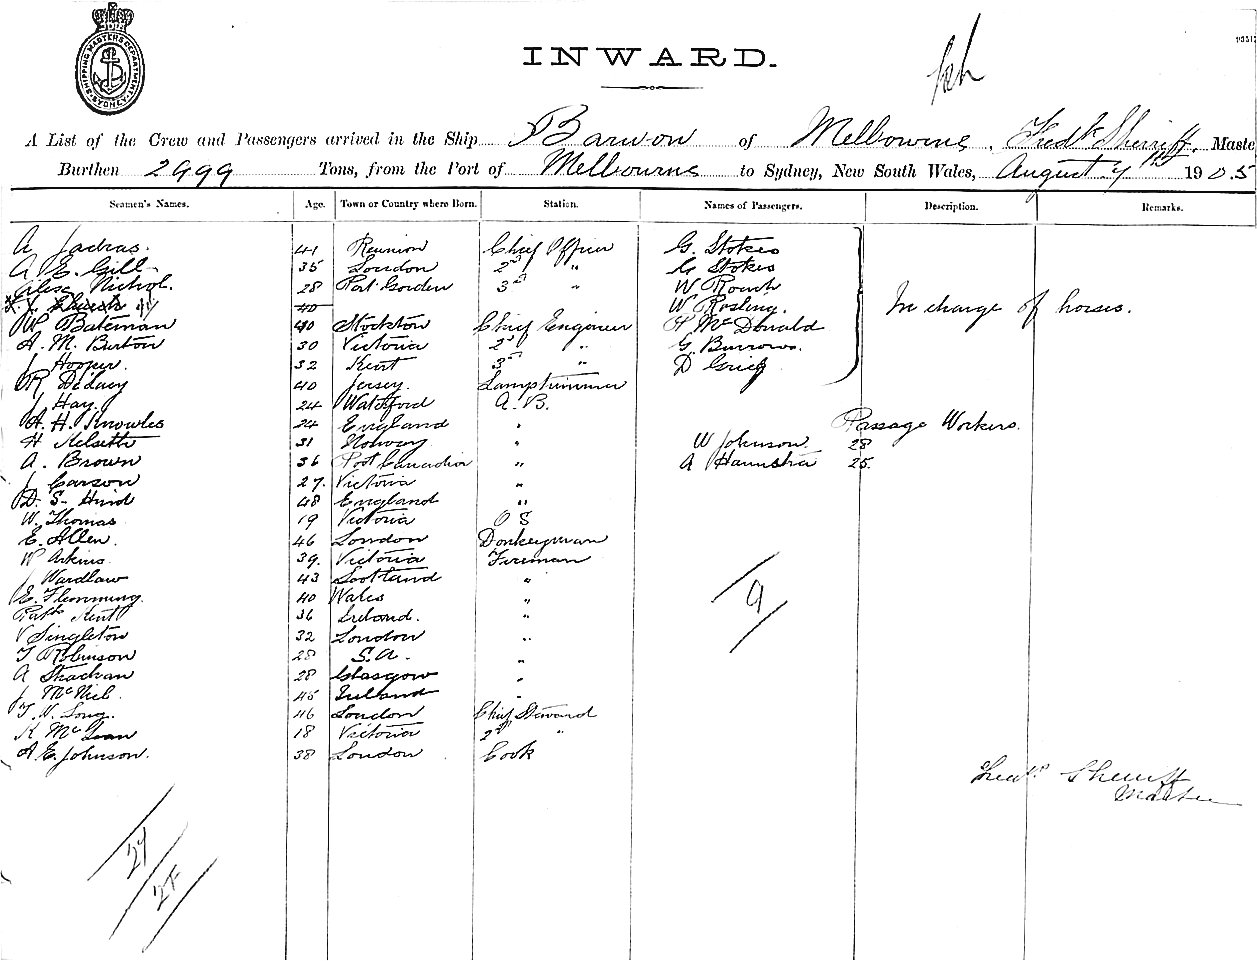 SHIPPING MASTER'S DEPARTMENT SYDNEY
INWARD.
A List of the Crew and Passengers arrived in the Ship Barwon of Melbourne, Fredk Sherriff, Maste
Burthen 2999 Tons, from the Port of Melbourne to Sydney, New South Wales, August 7th 1905
Seamen's Names. Age. Town or Country where Born. Station. Names of Passengers. Description. Remarks.
A Jadras. 41 Reunion Chief Officer G. Stokes
A E. Gill 35 London 2nd " G Stokes
Nichol. 28 Port Gorden 3rd " W Roach
40 W Rosling.
In charge of horses.
W Bateman 40 Stockton Chief Engineer H McDonald
A. M. Burton 30 Victoria 2nd " G. Burrows.
J Hooper. 32 Kent 3rd " D Greig
R Delacy 40 Jersey. Lamptrimmer
J Hay. 24 Watchford A.B.
A. H. Knowles 24 England "
Passage Workers.
H 31 Norway " W Johnson 28
A. Brown 36 Port " A 25.
J Carson 27. Victoria "
D. S. Hind 48 England "
W. Thomas 19 Victoria O S
E. Allen. 46 London Donkeyman
W Askins 39. Victoria Fireman
J Wardlaw 43 Scotland "
E. Flemming. 40 Wales "
9
Patk Kent 36 Ireland. "
V Singleton 32 London "
T Robinson 28 S.A. "
A Strachan 28 Glasgow "
J McNeil. 45 Ireland "
T. V. Long. 46 London Chief Steward
K McLean 18 Victoria 2nd "
A E. Johnson. 38 London Cook
Fredk Sherriff
Master
27
27